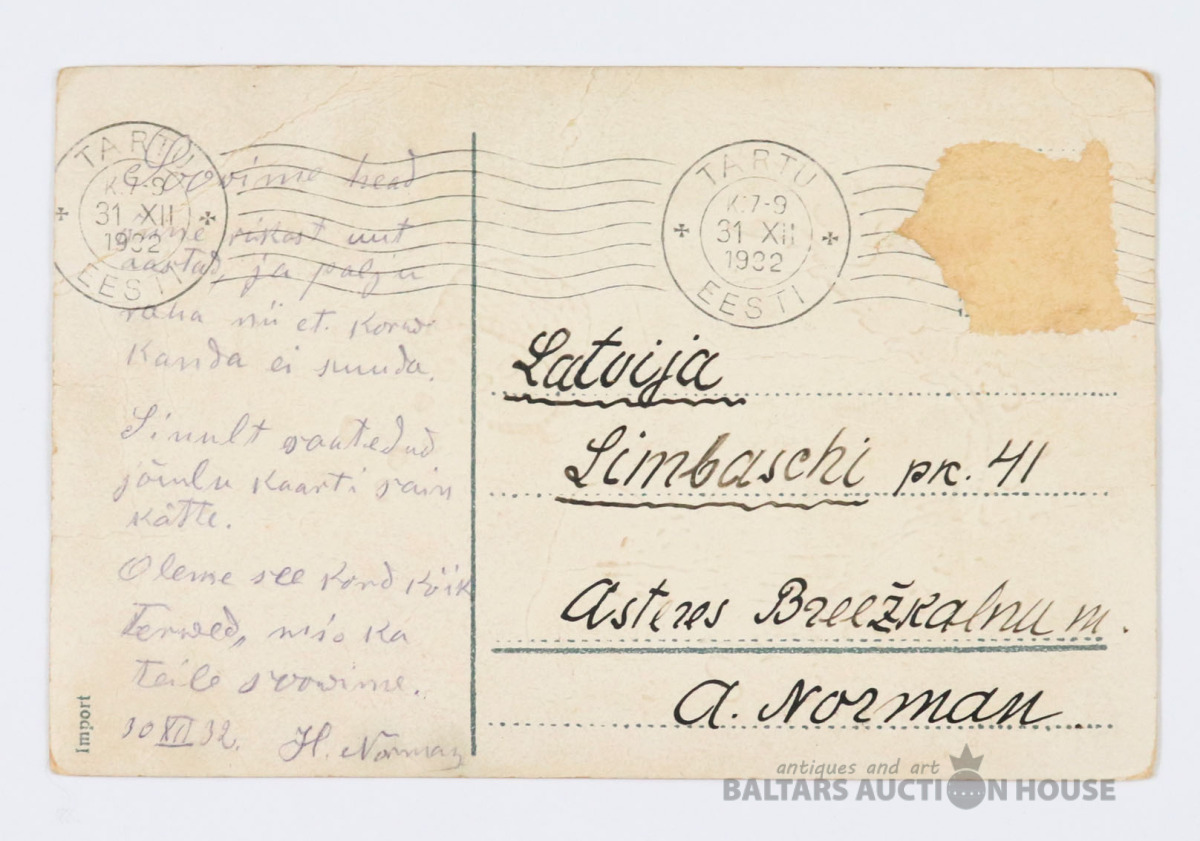 TARTU
K.7-9
31 XII
1932
EESTI
TARTU
K.7-9
31 XII
1932
EESTI
Soovime head
rikast uut
aastad, ja palju
raha nii et
Kanda ei suuda.
Sinult saatedud
jõulu Kaarti sain
Kätte.
Oleme see Kord Kõik
Terwed, mis Ka
teile soowime.
30 XII 32. H. Norman
Import
Latvija
Limbaschi pk. 41
Asteres Breežkalnu m.
A. Norman
antiques and art
BALTARS AUCTION HOUSE